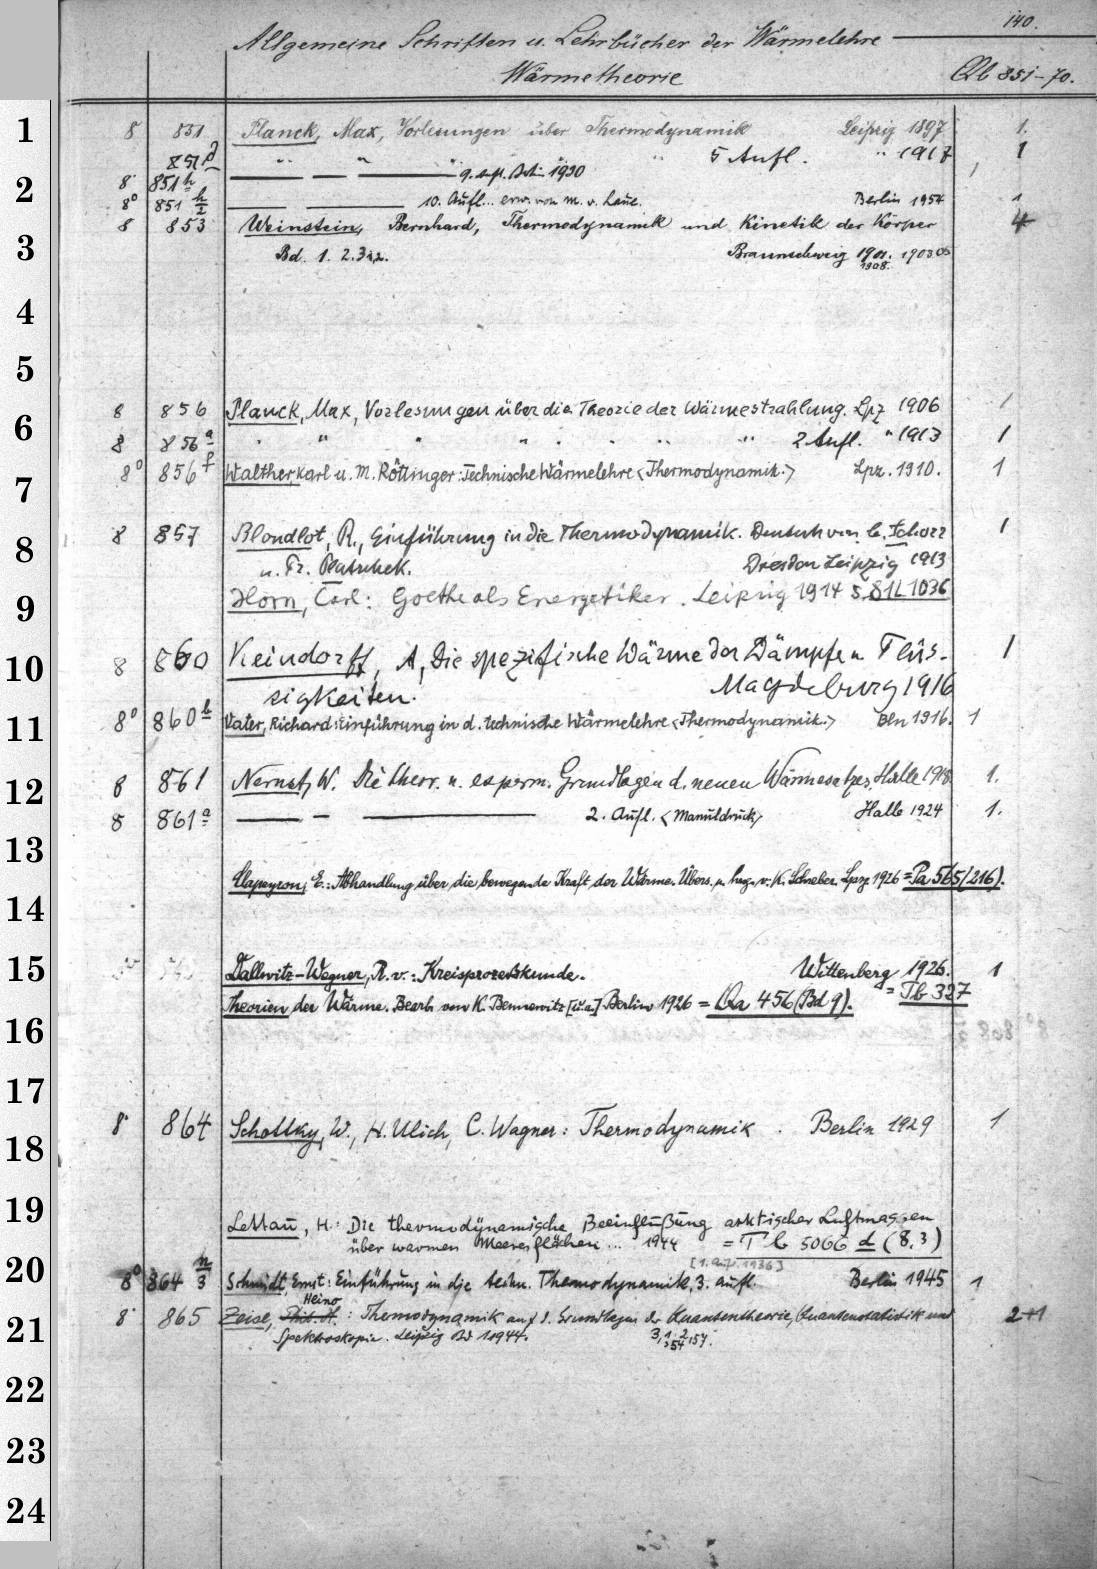 140.
Allgemeine Schriften u. Lehrbücher der Wärmelehre
Wärmetheorie Qb 851-70.
1 8 851 Planck, Max, Vorlesungen über Thermodynamik Leipzig 1897 1.
851 d " " " " 5 Aufl. " 1917 1
2 8° 851 h — — — 9. Aufl. Berlin 1930 1
8° 851 h/2 — — 10. Aufl.. erw. von M. v. Laue. Berlin 1954 1
8 853 Weinstein, Bernhard, Thermodynamik und Kinetik der Körper 4
3 Bd. 1. 2. 3 1,2. Braunschweig 1901. 1903.05
1908.
4
5
6 8 856 Planck, Max, Vorlesungen über die Theorie der Wärmestrahlung. Lpz 1906 1
8 856 a " " " " " " " " 2 Aufl. " 1913 1
7 8° 856 f Walther, Karl u. M. Röttinger: Technische Wärmelehre <Thermodynamik.> Lpz. 1910. 1
8 8 857 Blondlot, R., Einführung in die Thermodynamik. Deutsch von C. Schorr 1
u. Fr. Platschek. Dresden Leipzig 1913
9 Horn, Carl: Goethe als Energetiker. Leipzig 1914 s. 81L 1036
10 8 860 Keindorff, A, Die spezifische Wärme der Dämpfe u Flüs- 1
sigkeiten. Magdeburg 1916
11 8° 860 b Vater, Richard: Einführung in d. technische Wärmelehre <Thermodynamik.> Bln 1916. 1
12 8 861 Nernst, W. Die theor. u. experm. Grundlagen d. neuen Wärmesatzes, Halle 1918 1.
8 861 a — — — 2. Aufl. <Manuldruck> Halle 1924 1.
13
14 Clapeyron, E.: Abhandlung über die bewegende Kraft der Wärme. Übers. u. hrsg. v. K. Schreber. Lpzg 1926 = Pa 565 (216).
15 Dallwitz-Wegner, R. v.: Kreisprozeßkunde. Wittenberg 1926. 1
= Tb 327
Theorien der Wärme. Bearb. von K. Bennewitz [u.a.] Berlin 1926 = Qa 456 (Bd 9).
16
17
18 8° 864 Schottky, W., H. Ulich, C. Wagner: Thermodynamik. Berlin 1929 1
19 Lettau, H.: Die thermodynamische Beeinflußung arktischer Luftmassen
über warmen Meeresflächen ... 1944 = Tb 5066 d (8,3)
[1. Aufl. 1936]
20 8° 864 n/3 Schmidt, Ernst: Einführung in die techn. Thermodynamik, 3. Aufl. Berlin 1945 1
Heino
21 8° 865 Zeise, : Thermodynamik auf d. Grundlagen der Quantentheorie, Quantenstatistik und 2+1
Spektroskopie. Leipzig Bd 1.1944. 3,1.2
22
23
24